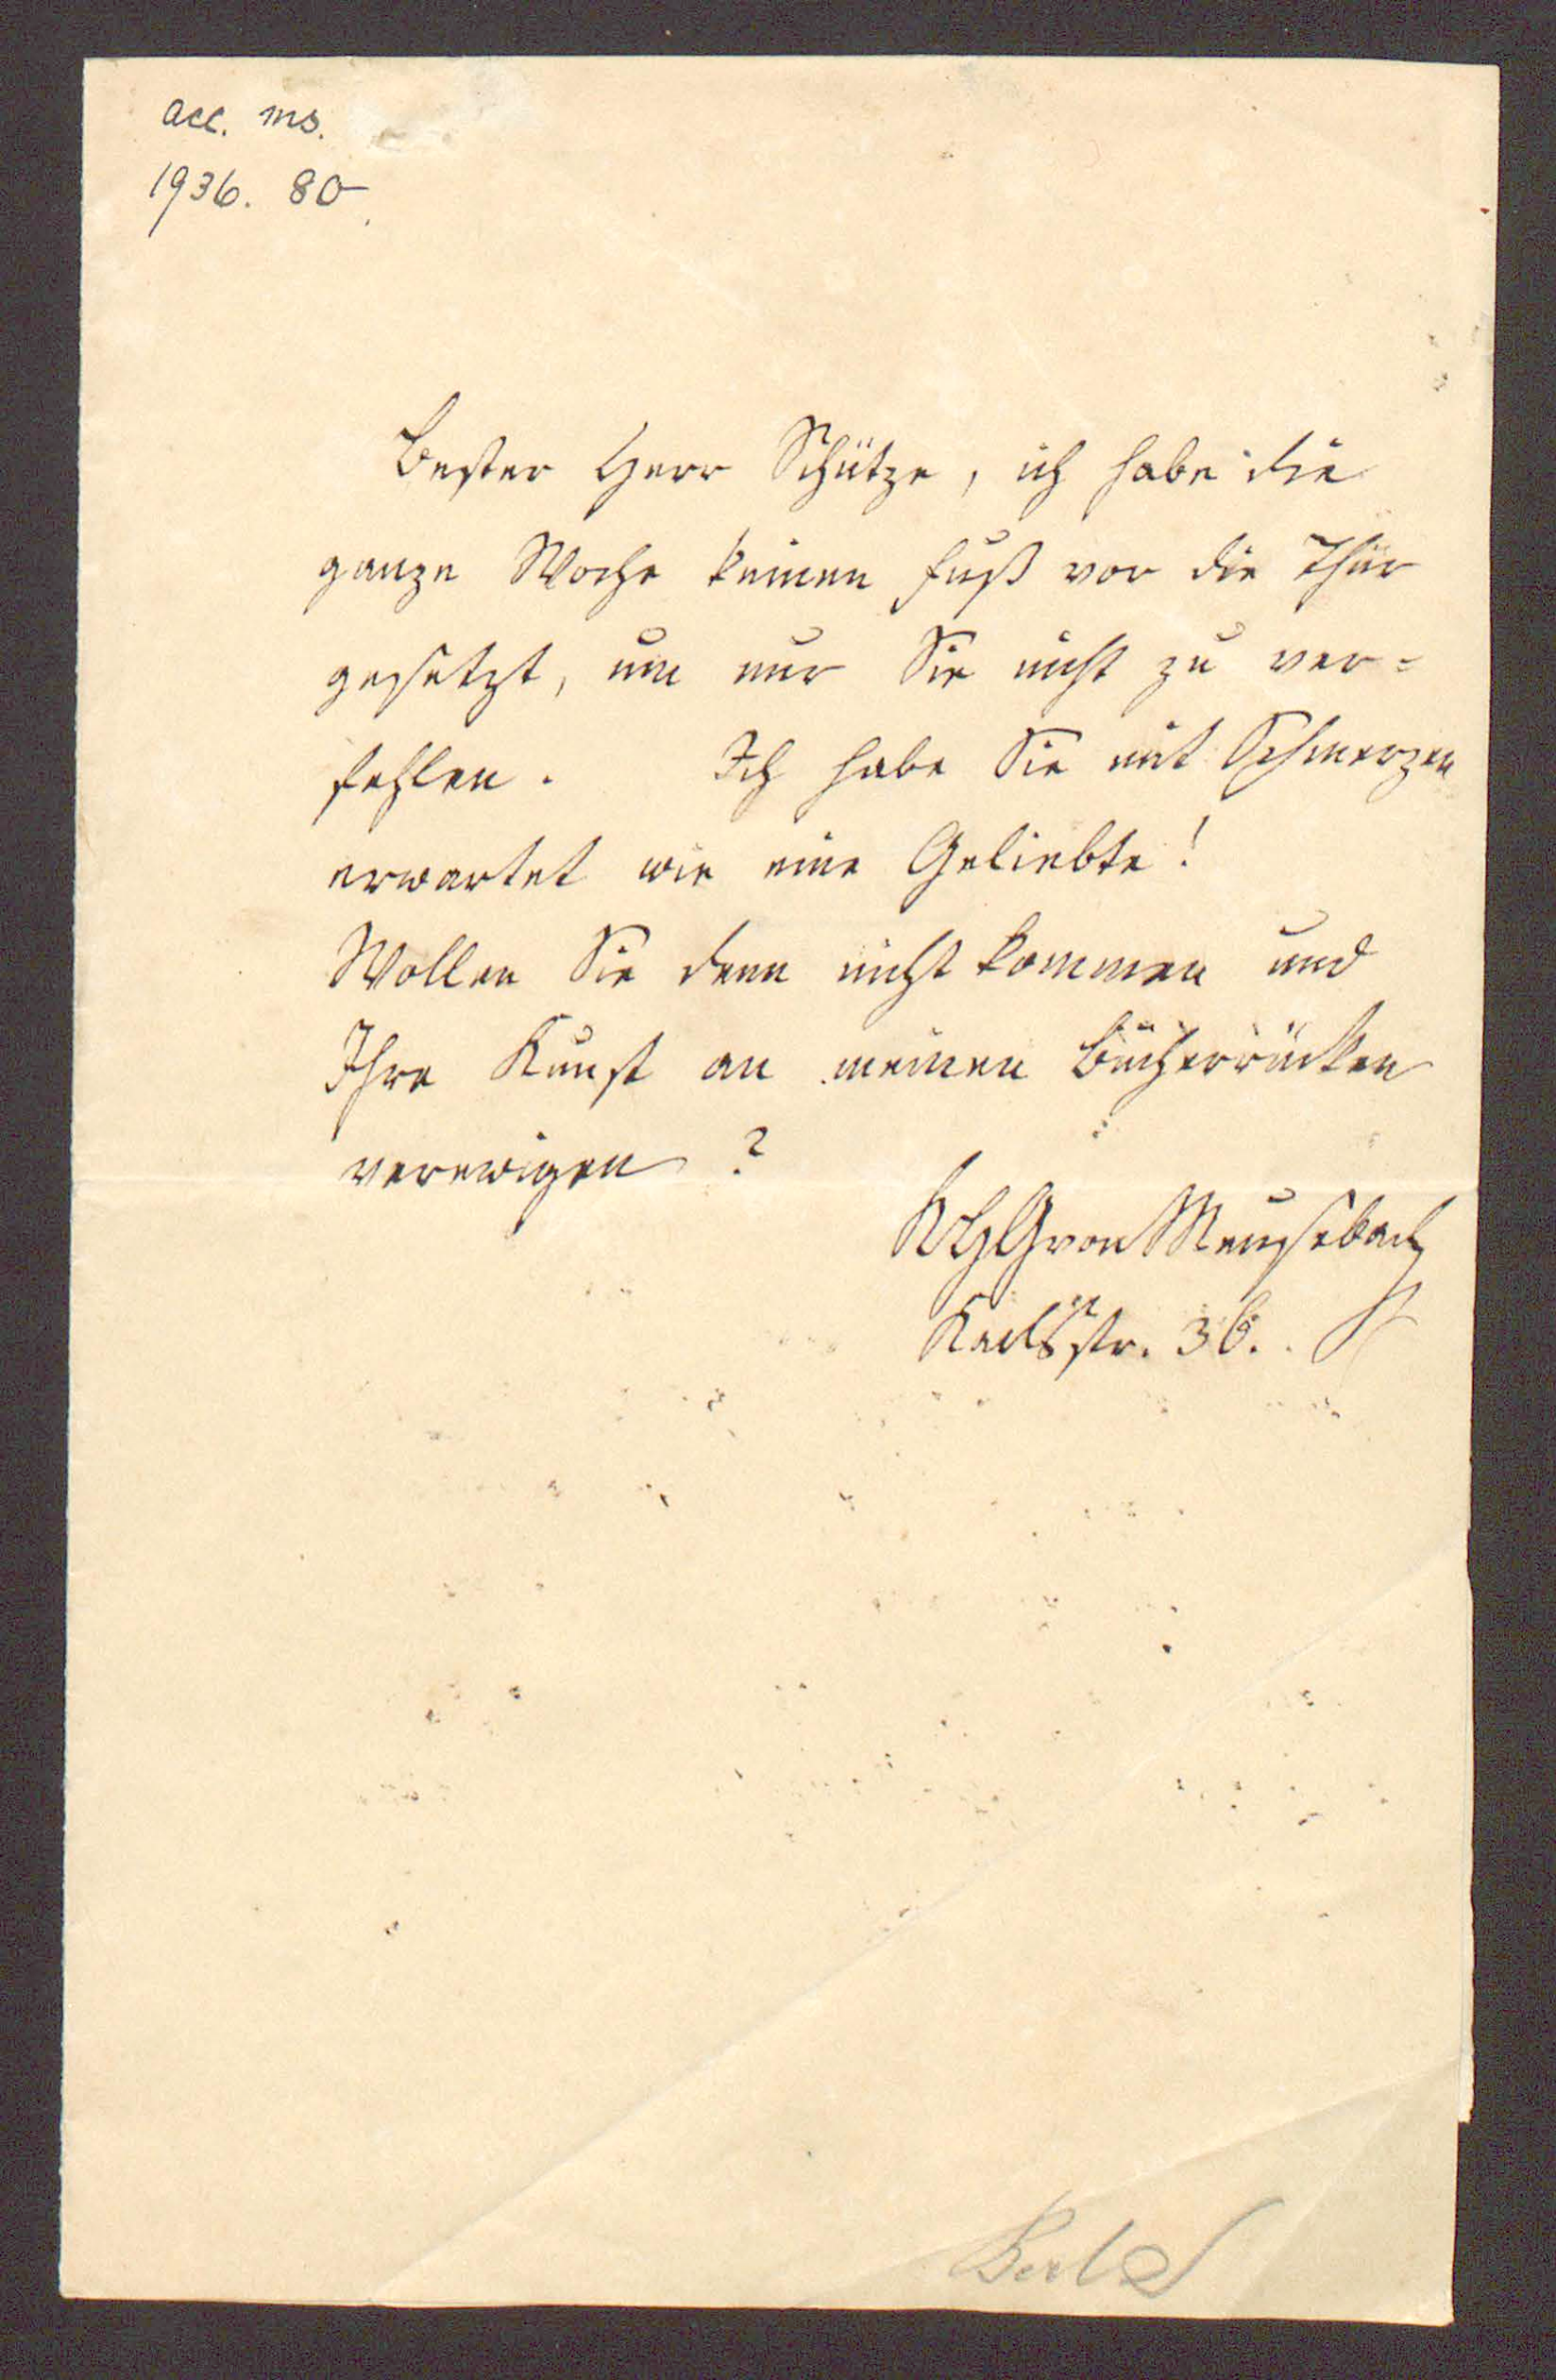 acc. ms.
1936. 80.
Bester Herr Schütze, ich habe die
ganze Woche keinen Fuß vor die Thür
gesetzt, um nur Sie nicht zu ver=
fehlen. Ich habe Sie mit Schmerzen
erwartet wie eine Geliebte!
Wollen Sie denn nicht kommen und
Ihre Kunst an meinen Bücherrücken
verewigen?
KHGvonMeusebach
Karlsstr. 36.